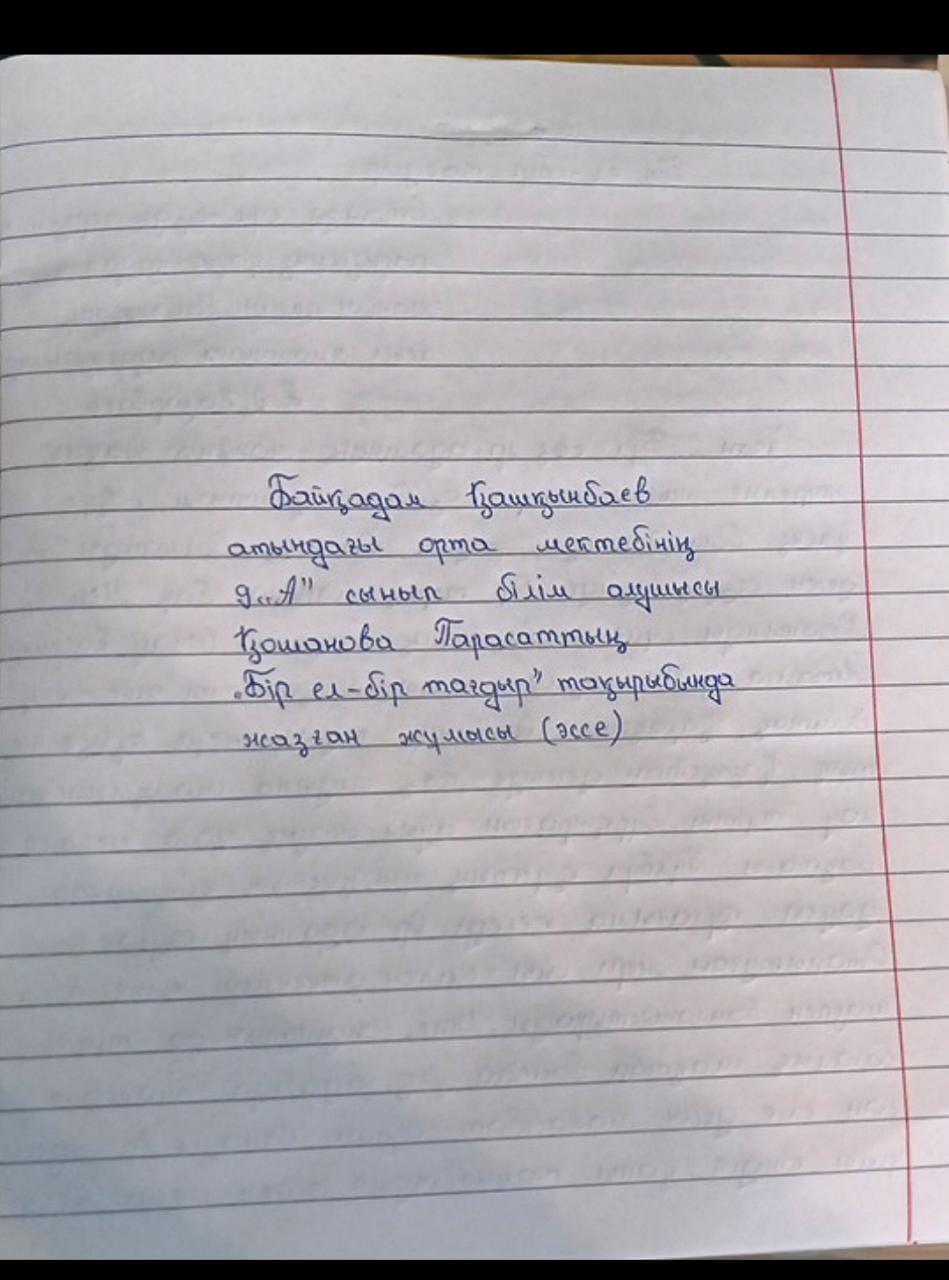 Байқадам Қашқынбаев
атындағы орта мектебінің
9 „А” сынып білім алушысы
Қошанова Парасаттың
„Бір ел-бір тағдыр” тақырыбында
жазған жұмысы (эссе)